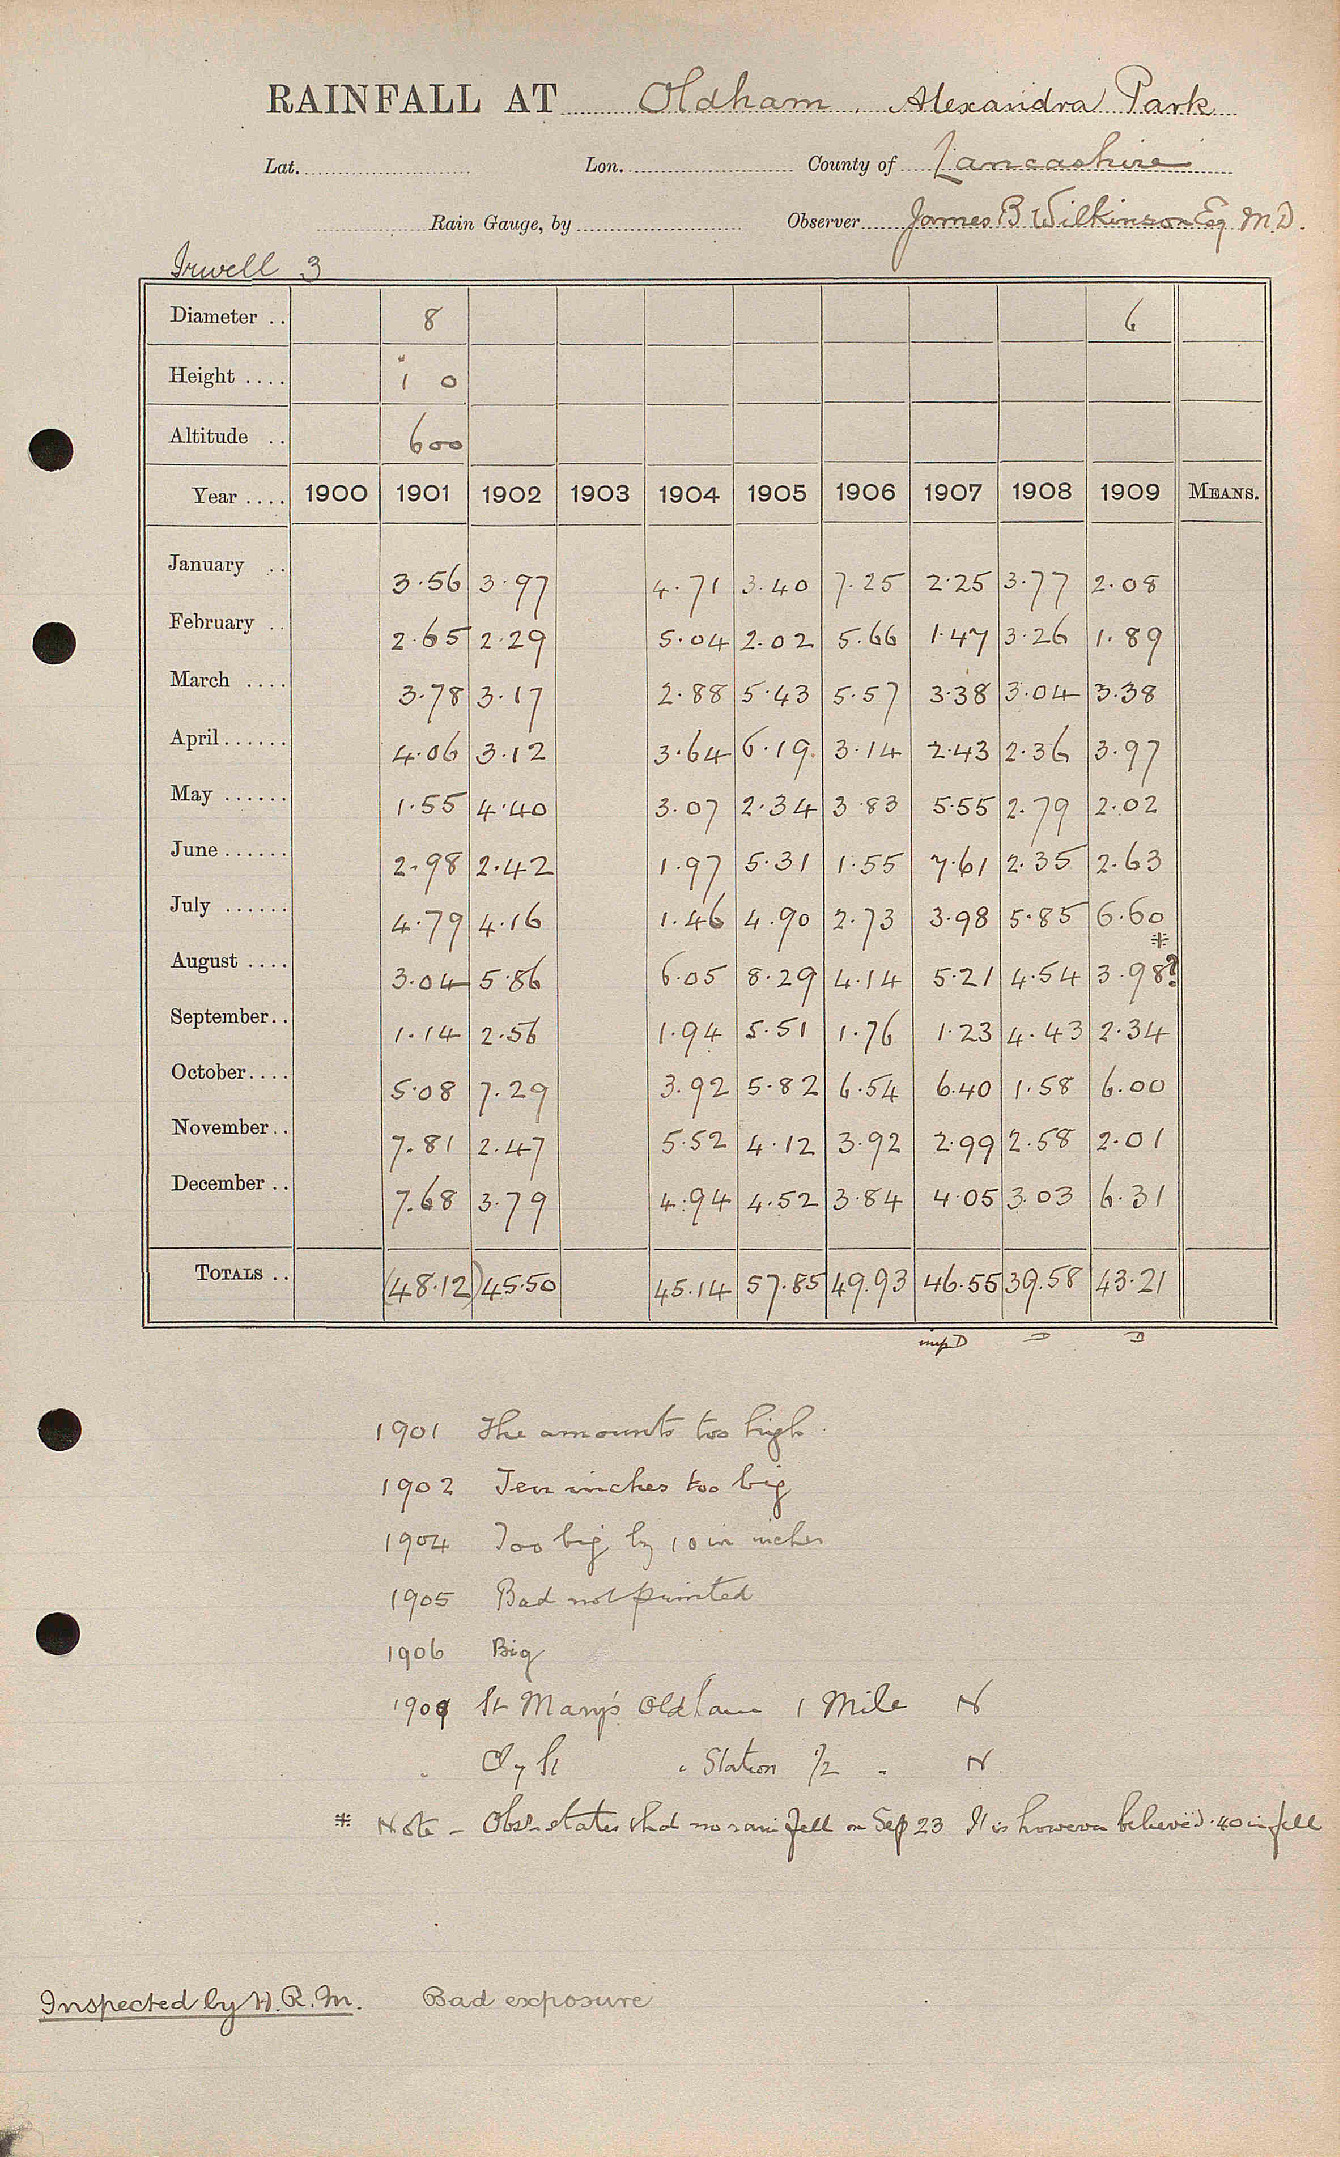 RAINFALL AT Oldham, Alexandra Park
Lat. Lon. County of Lancashire
Rain Gauge, by Observer James B Wilkinson Esq M.D.
Irwell 3
Diameter .. 8 6
Height .... 1 0
Altitude .. 600
Year .... 1900 1901 1902 1903 1904 1905 1906 1907 1908 1909 MEANS.
January .. 3.56 3.97 4.71 3.40 7.25 2.25 3.77 2.08
February .. 2.65 2.29 5.04 2.02 5.66 1.47 3.26 1.89
March .... 3.78 3.17 2.88 5.43 5.57 3.38 3.04 3.38
April ...... 4.06 3.12 3.64 6.19 3.14 2.43 2.36 3.97
May ...... 1.55 4.40 3.07 2.34 3.83 5.55 2.79 2.02
June ...... 2.98 2.42 1.97 5.31 1.55 7.61 2.35 2.63
July ...... 4.79 4.16 1.46 4.90 2.73 3.98 5.85 6.60
August .... 3.04 5.86 6.05 8.29 4.14 5.21 4.54 3.98?*
September.. 1.14 2.56 1.94 5.51 1.76 1.23 4.43 2.34
October.... 5.08 7.29 3.92 5.82 6.54 6.40 1.58 6.00
November.. 7.81 2.47 5.52 4.12 3.92 2.99 2.58 2.01
December .. 7.68 3.79 4.94 4.52 3.84 4.05 3.03 6.31
TOTALS .. (48.12) 45.50 45.14 57.85 49.93 46.55 39.58 43.21
imp D D D
1901 The amounts too high.
1902 Ten inches too big
1904 Too big by 10 in inches
1905 Bad not printed
1906 Big
1909 St Mary's Oldham 1 Mile N
" Station 1/2 " N
* Note - Obsr states that no rain fell on Sep 23 It is however believed .40 in fell
Inspected by H.R.M. Bad exposure